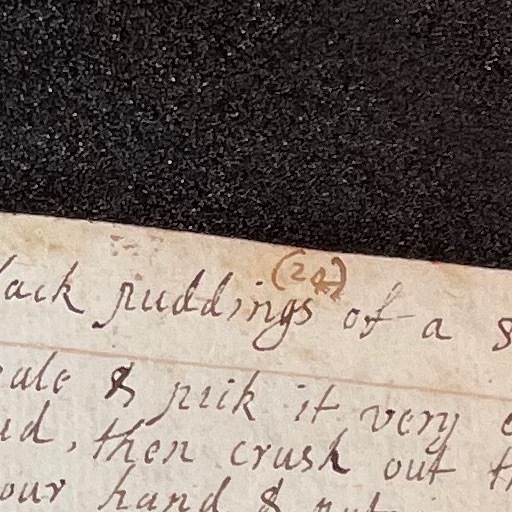 (24)
lack puddings of a s
eale & pick it very c
ud, then crush out th
our hand & put